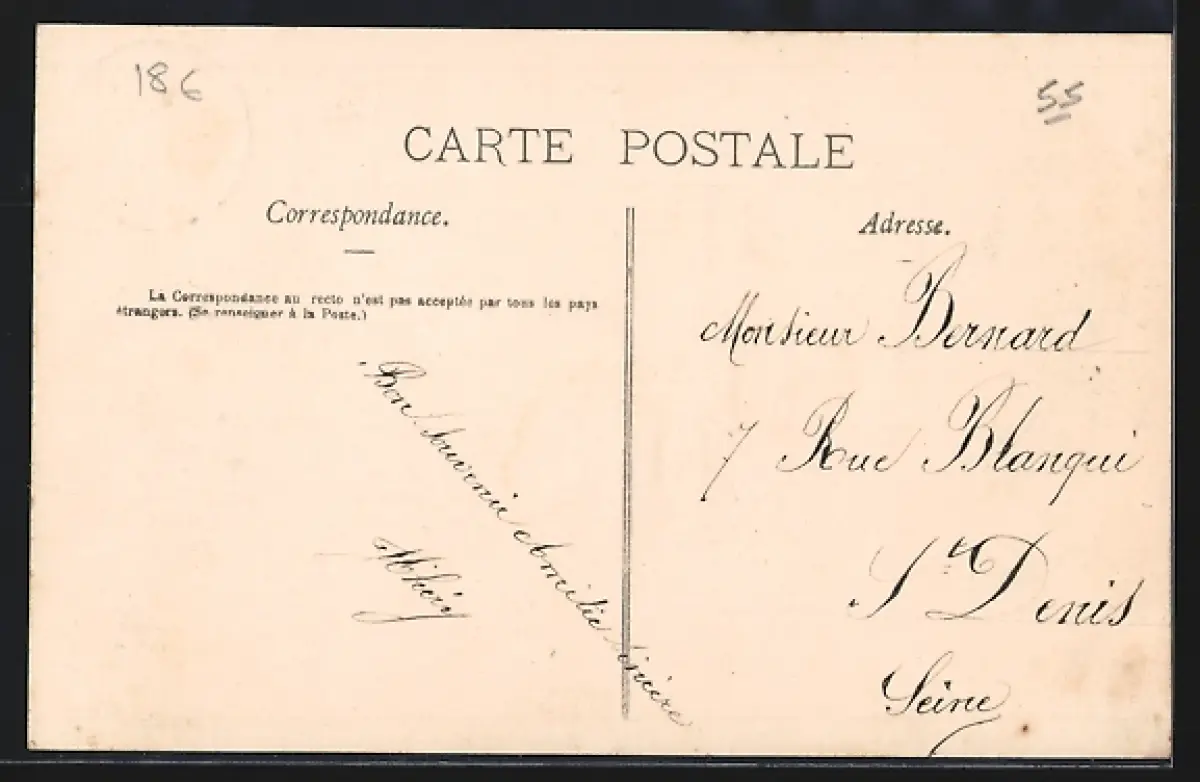 186
55
CARTE POSTALE
Correspondance.
La Correspondance au recto n'est pas acceptée par tous les pays
étrangers. (Se renseigner à la Poste.)
Bon Souvenir et Amitié Sincère
Adresse.
Monsieur Bernard
7 Rue Blanqui
St Denis
Seine